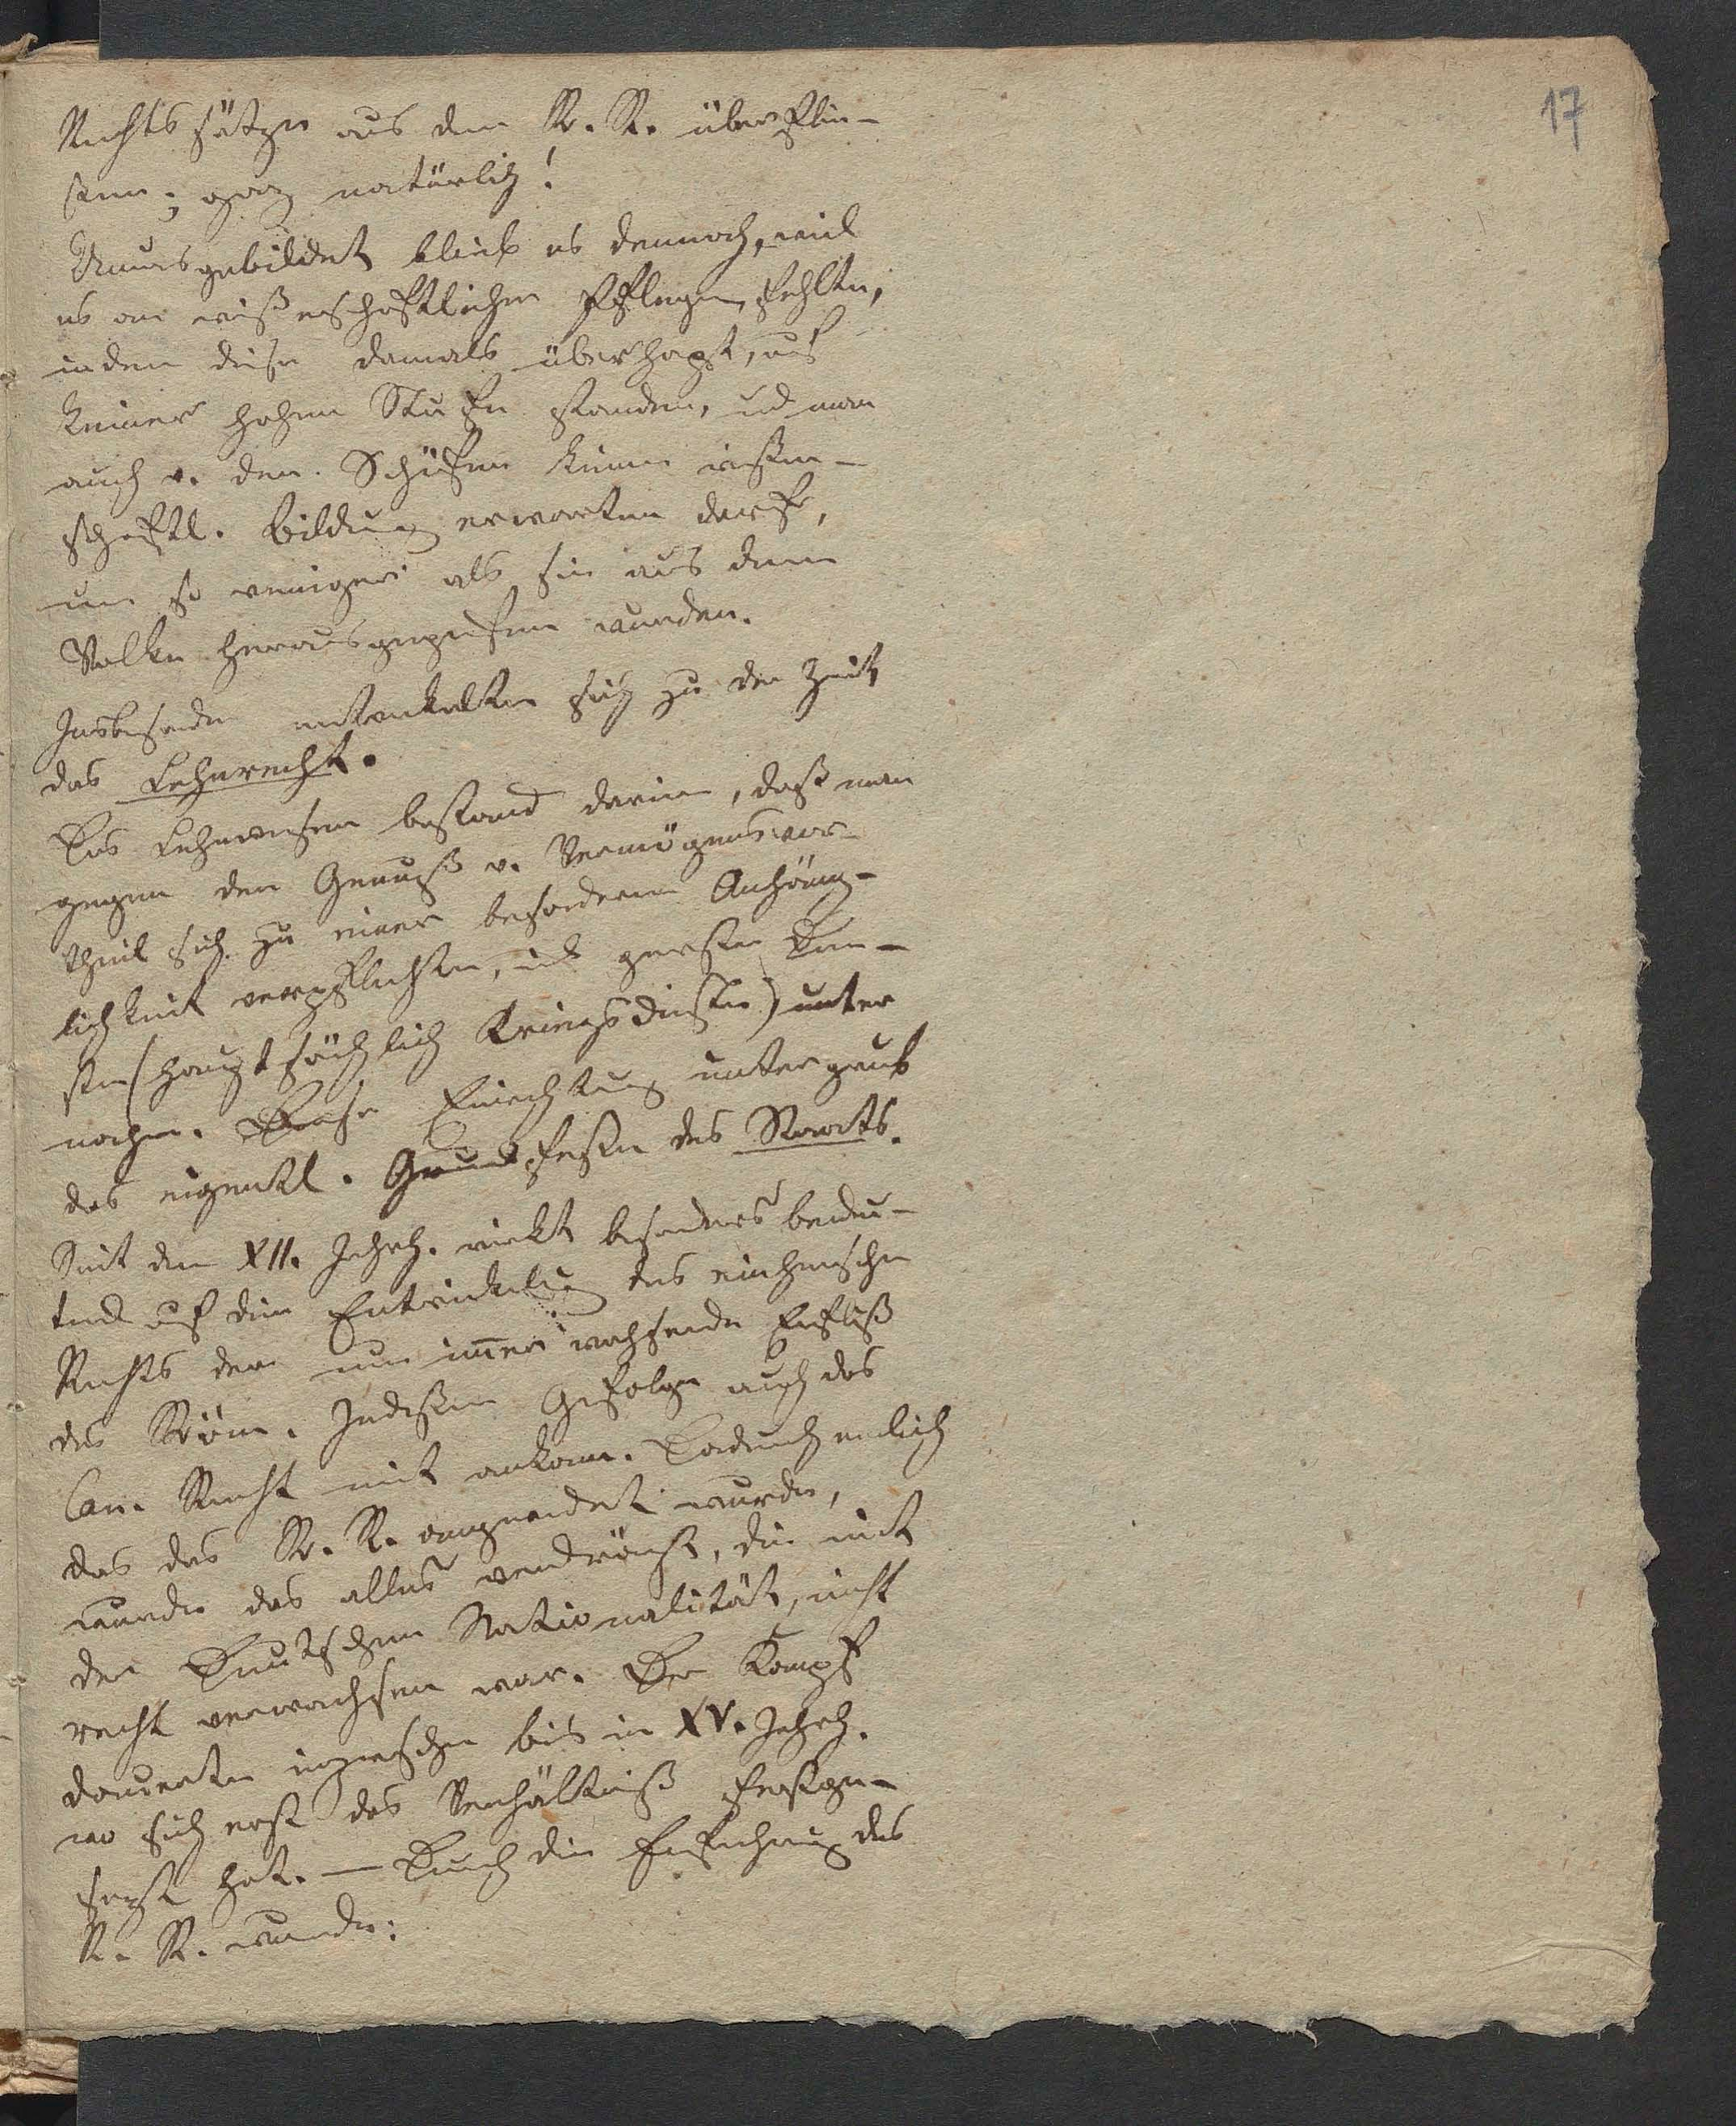 17
Rechtssätze aus dem R. R. überflie-
ßen; ganz natürlich!
Unausgebildet blieb es dennoch, weil
es an wißenschaftlicher Pflege fehlte,
indem diese damals überhapt, auf
keiner hohen Stufe standen, ud man
auch v. den Schöfen keine wißen-
schaftl. Bildung erwarten darf,
um so weniger als sie aus dem
Volke herausgegriefen wurden.
Insbesonde entwikelte sich zu der Zeit
das Lehnrecht.
Das Lehnwesen bestand darin, daß man
gegen den Genuß v. Vermögensvor-
theil sich zu einer besonderen Anhäng-
lichkeit verpflichte, ud gewiße Dien-
ste (hauptsächlich Kriegsdienste) unter
nahm. Diese Einrichtung untergrub
das eigentl. Grundfeste des Staats.
Seit dem XII. Jahrh. wirkt besonders bedeu-
tend auf die Entwickelung des einheimschen
Rechts der nun im̄er wachsende Einfluß
des Röm. In deßen Gefolge auch das
Can. Recht mit ankam. Dadurch endlich
das das R. R. angewendet wurde,
wurde das alles verdrängt, die mit
der Deutschen Nationalität, nicht
recht verwachsen war. Der Kampf
dauerte inzwischen bis in XV. Jahrh.
wo sich erst das Verhältniß festge-
setzt hat. — Durch die Einfuhrung des
R. R. wurde: